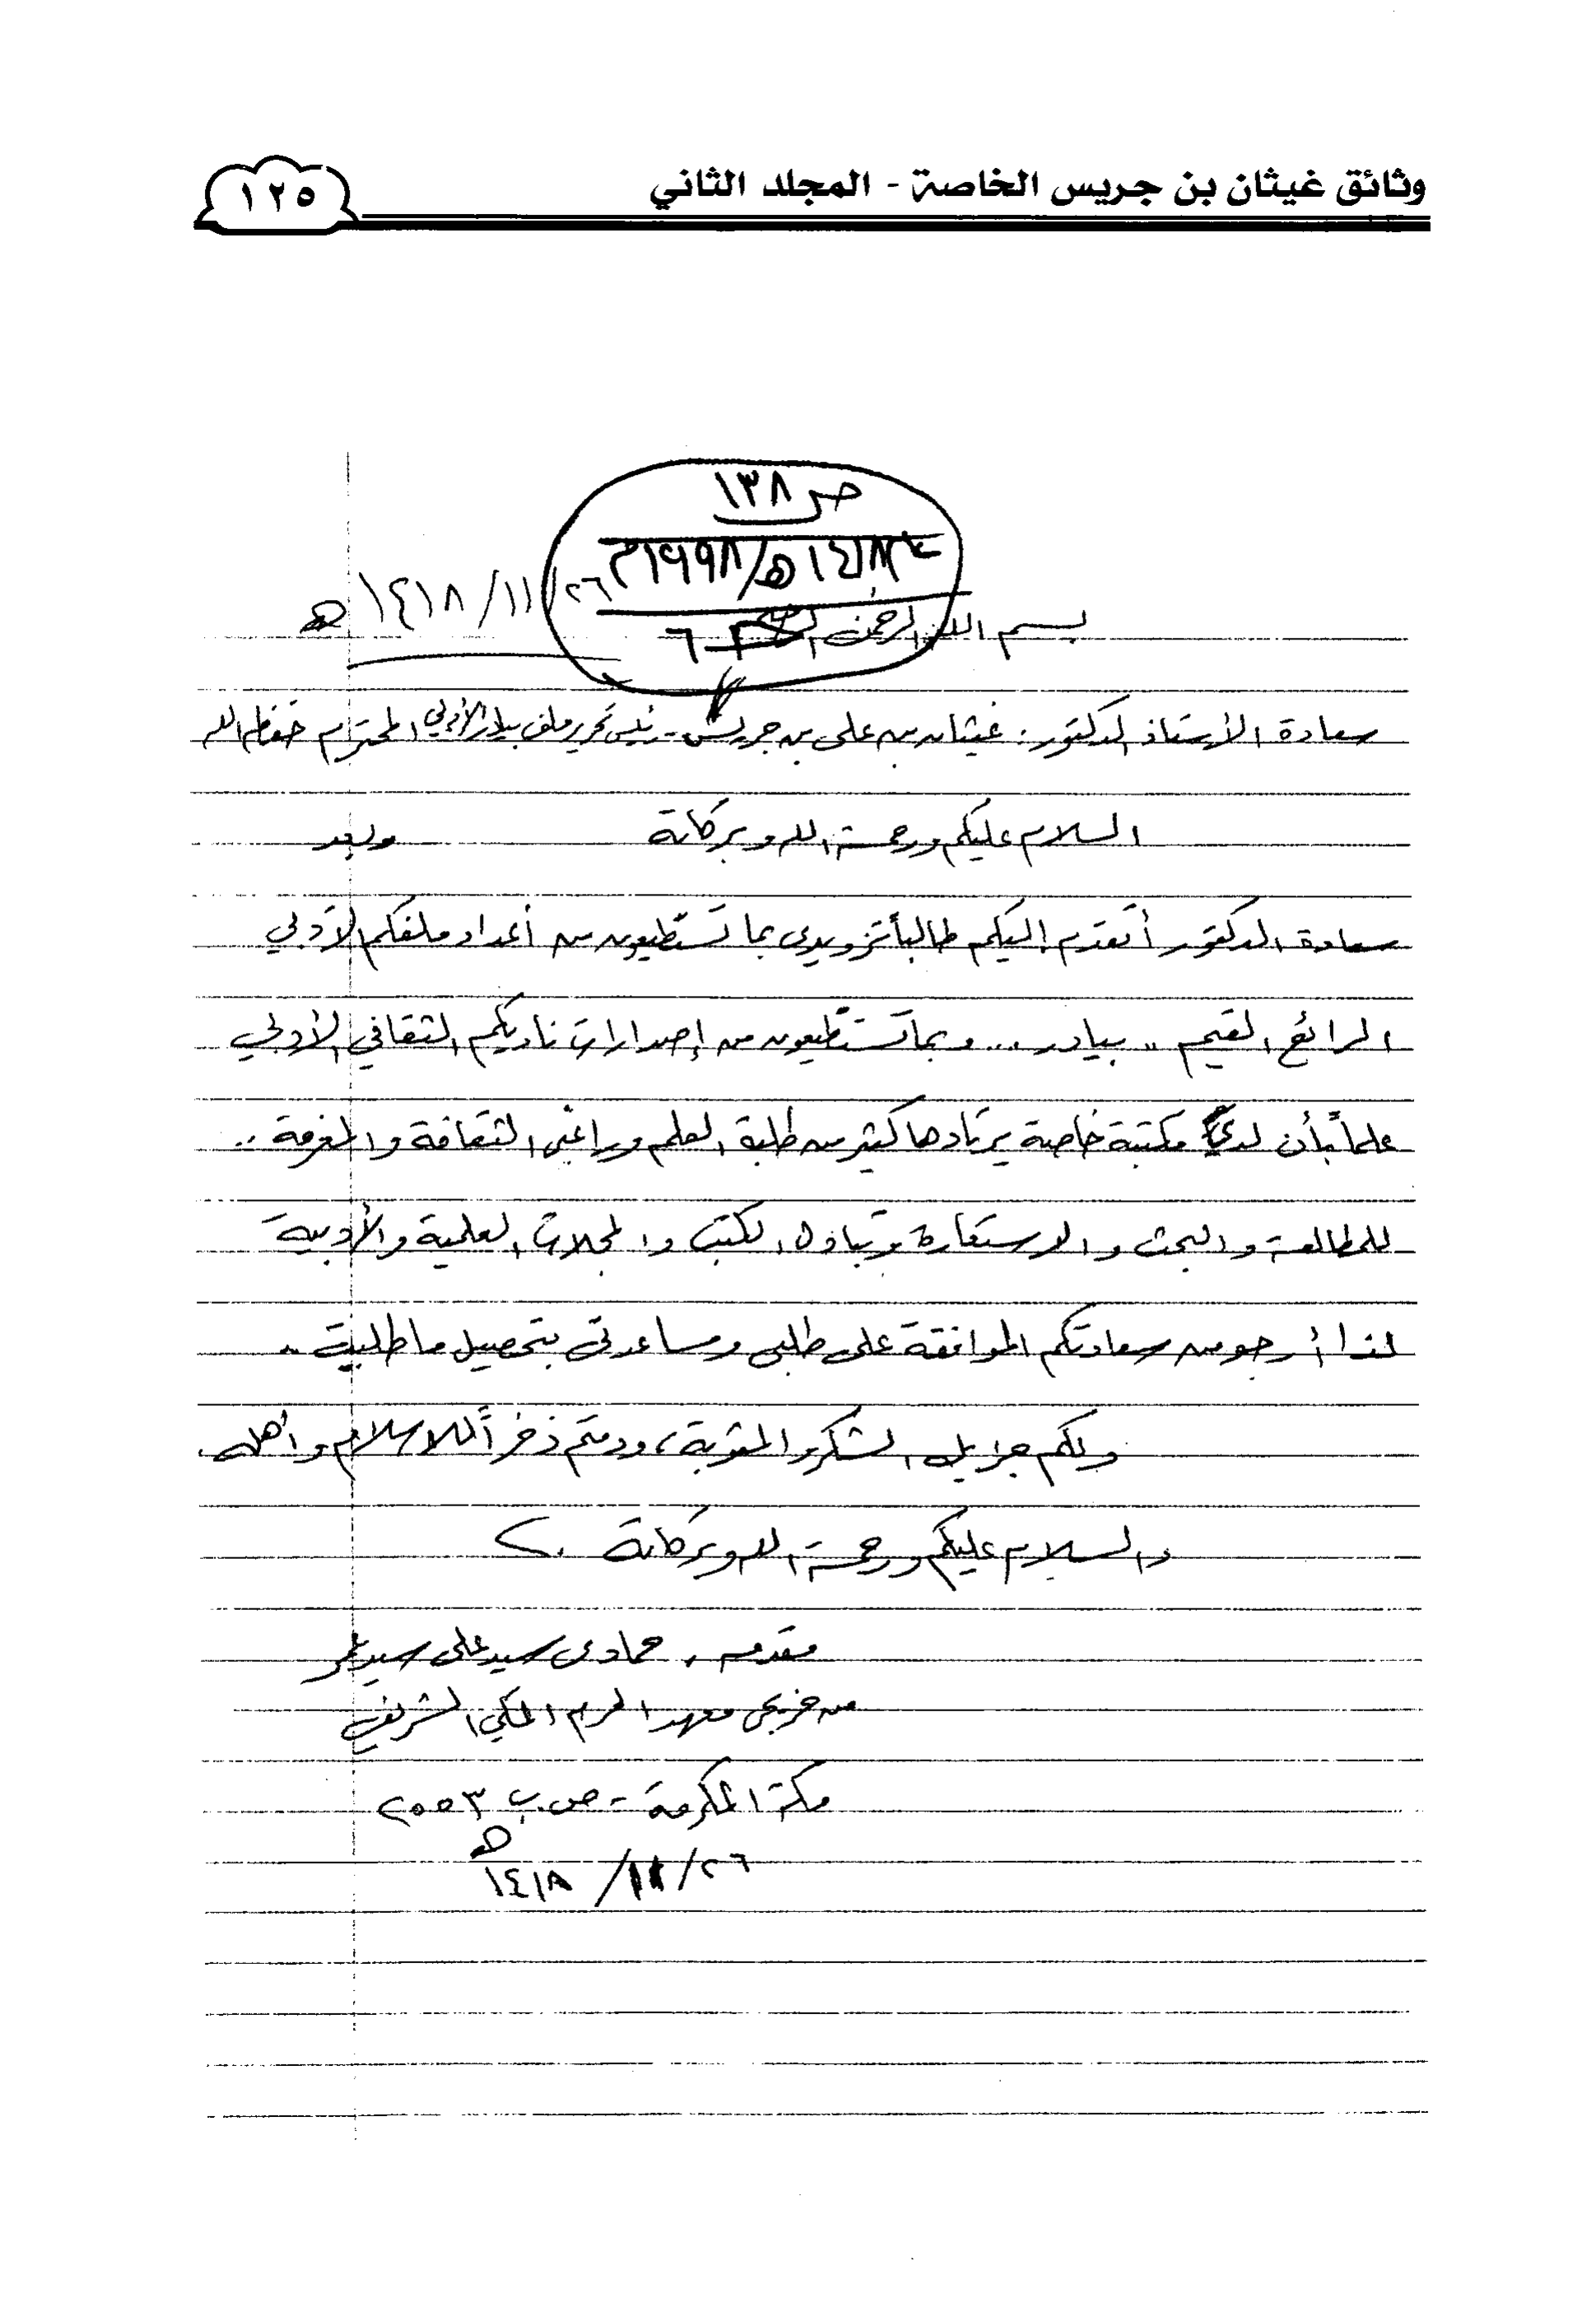 وثائق غيثان بن جريس الخاصة - المجلد الثاني
١٢٥
ص ١٣٨
١٤١٨هـ/١٩٩٨م
٢٦/١١/١٤١٨هـ
بسم الله الرحمن الرحيم
سعادة الأستاذ الدكتور: غيثان بن علي بن جريس - رئيس تحرير ملف بيادر الأدبي المحترم حفظه الله
السلام عليكم ورحمة الله وبركاته وبعد
سعادة الدكتور أتقدم إليكم طالباً تزويدي بما تستطيعون من أعداد ملفكم الأدبي
الرائع القيم ،، بيادر ... وبما تستطيعون من إصدارات ناديكم الثقافي الأدبي
علماً بأن لديّ مكتبة خاصة يرتادها كثير من طلبة العلم وراغبي الثقافة والمعرفة ..
للمطالعة والبحث والاستعارة وتبادل الكتب والمجلات العلمية والأدبية
لذا أرجو من سعادتكم الموافقة على طلبي ومساعدتي بتحصيل ما طلبته ..
ولكم جزيل الشكر والمثوبة، ودمتم ذخراً للإسلام وأهله.
والسلام عليكم ورحمة الله وبركاته .
مقدمه . حمادي سيد علي سيد
من خريجي معهد الحرم المكي الشريف
مكة المكرمة - ص.ب ٢٥٥٣
٢٦/١١/١٤١٨هـ